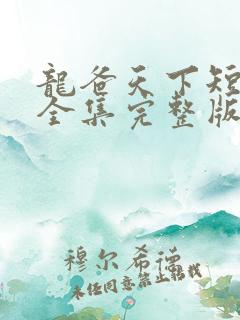 龍爸天下短
全集完整版
穆尔希德
未经同意禁止转载